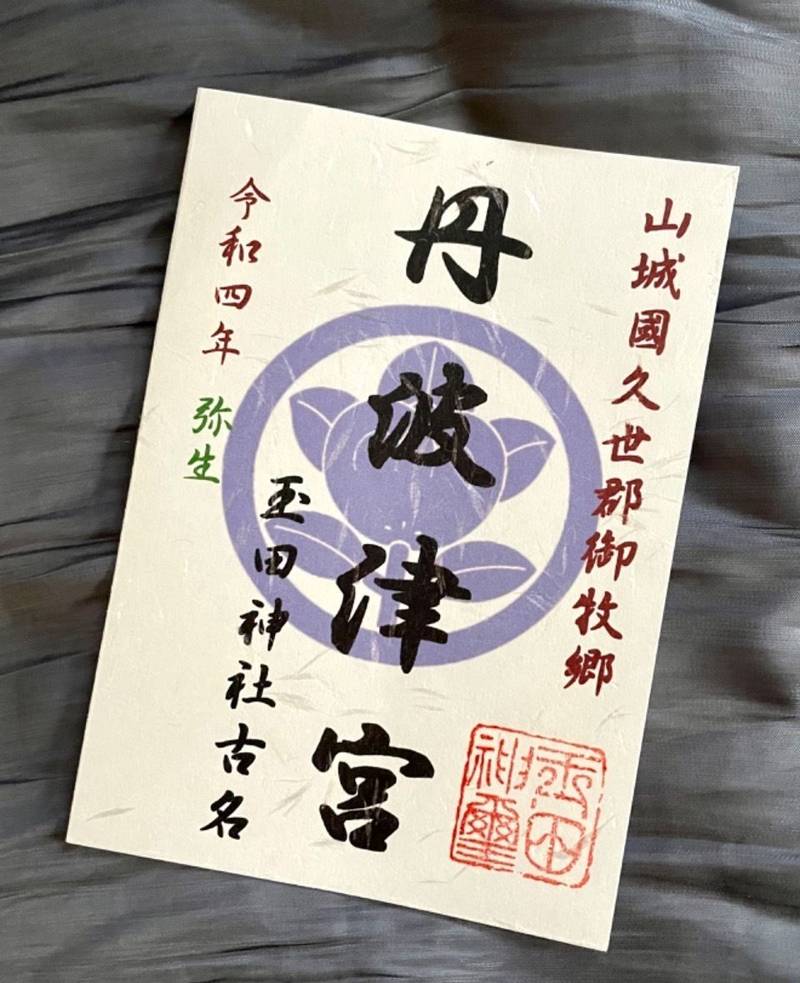 山城國久世郡御牧郷
丹波津宮
玉田神社古名
令和四年 弥生